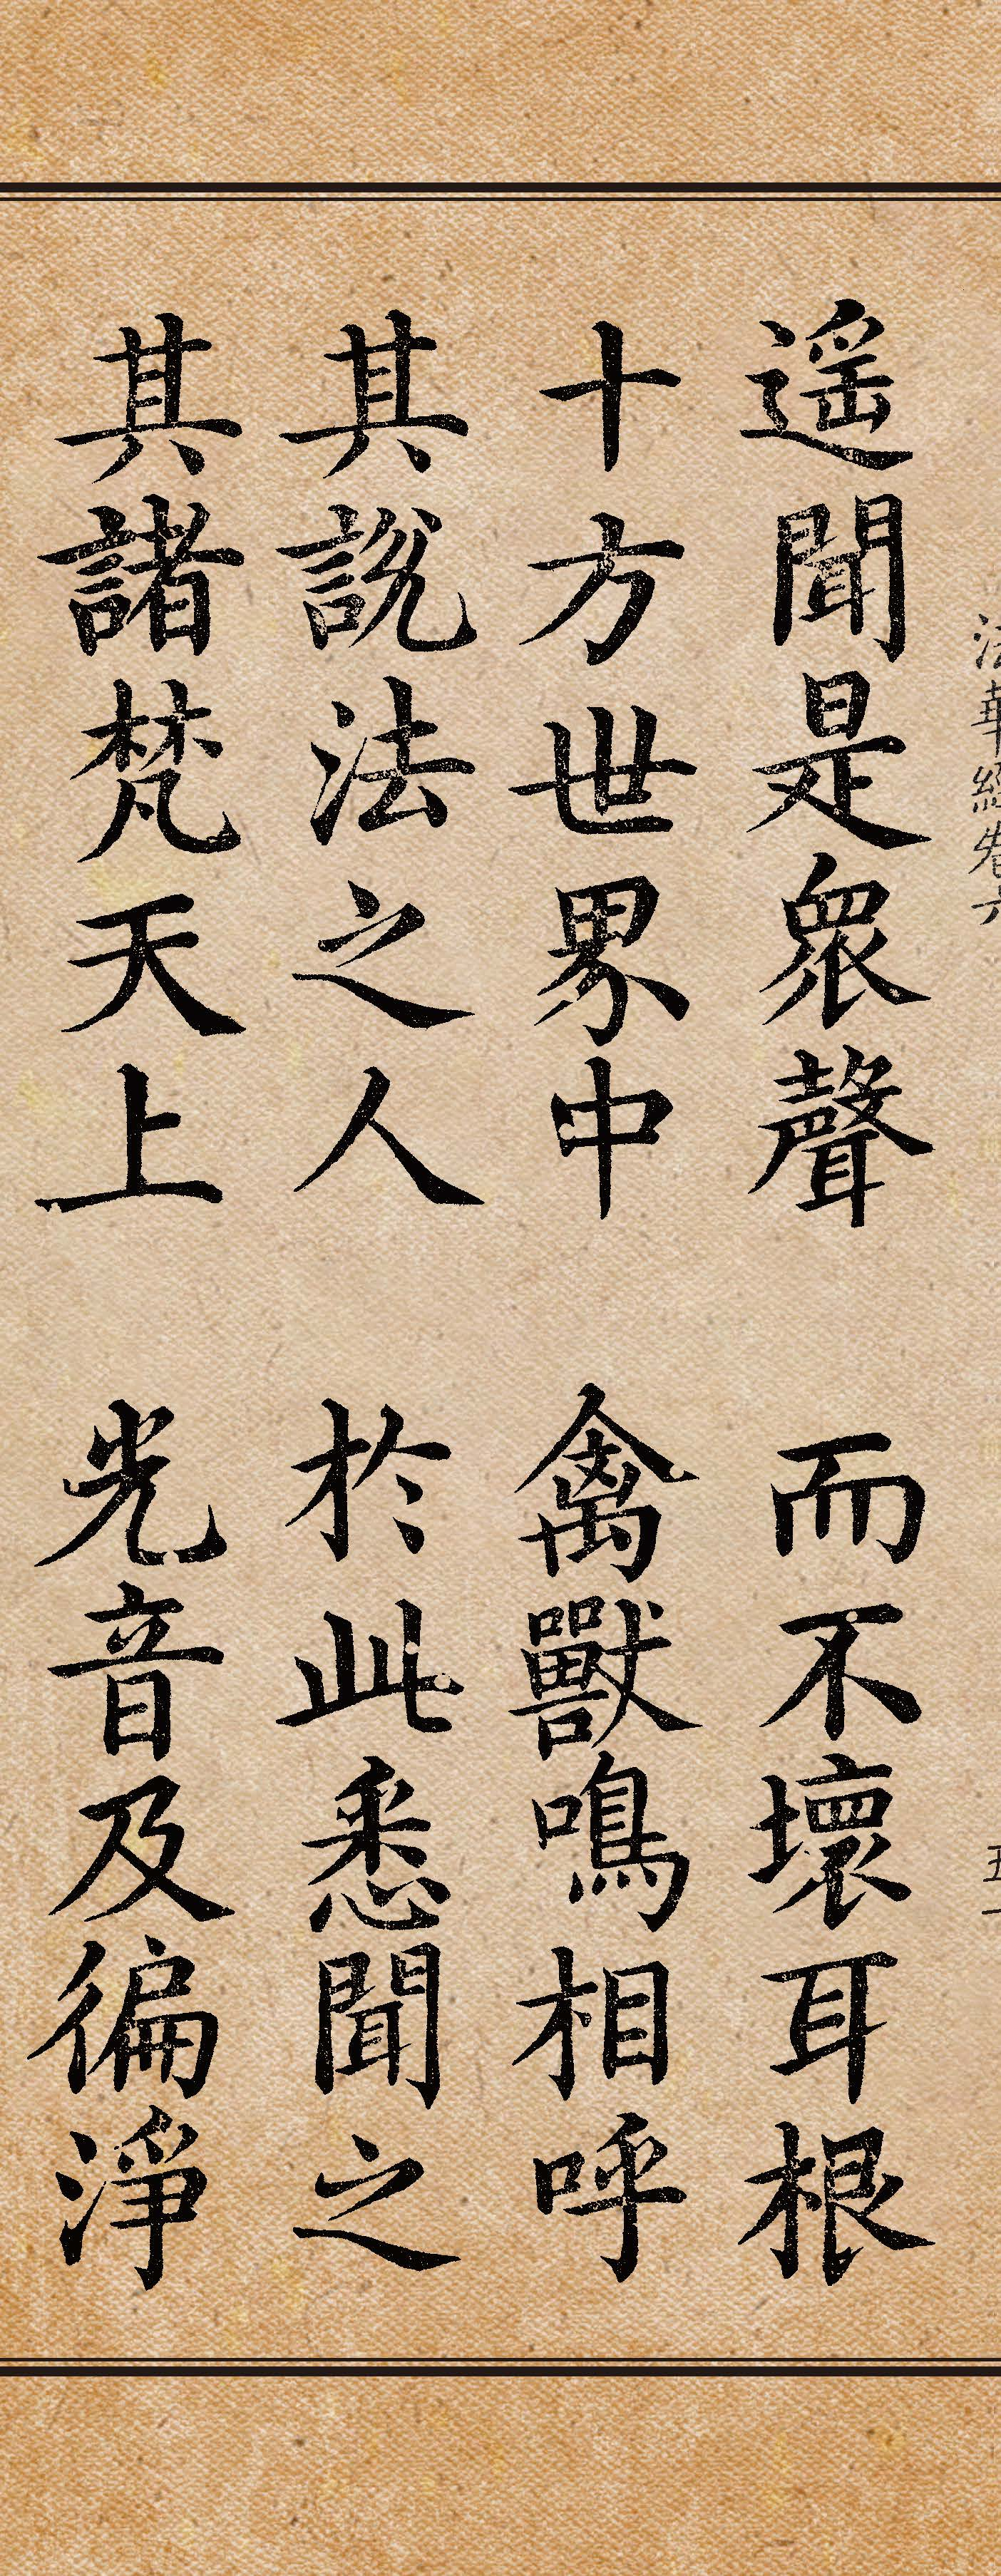 法華經卷六 五十
遥聞是眾聲 而不壞耳根
十方世界中 禽獸鳴相呼
其說法之人 於此悉聞之
其諸梵天上 光音及徧淨